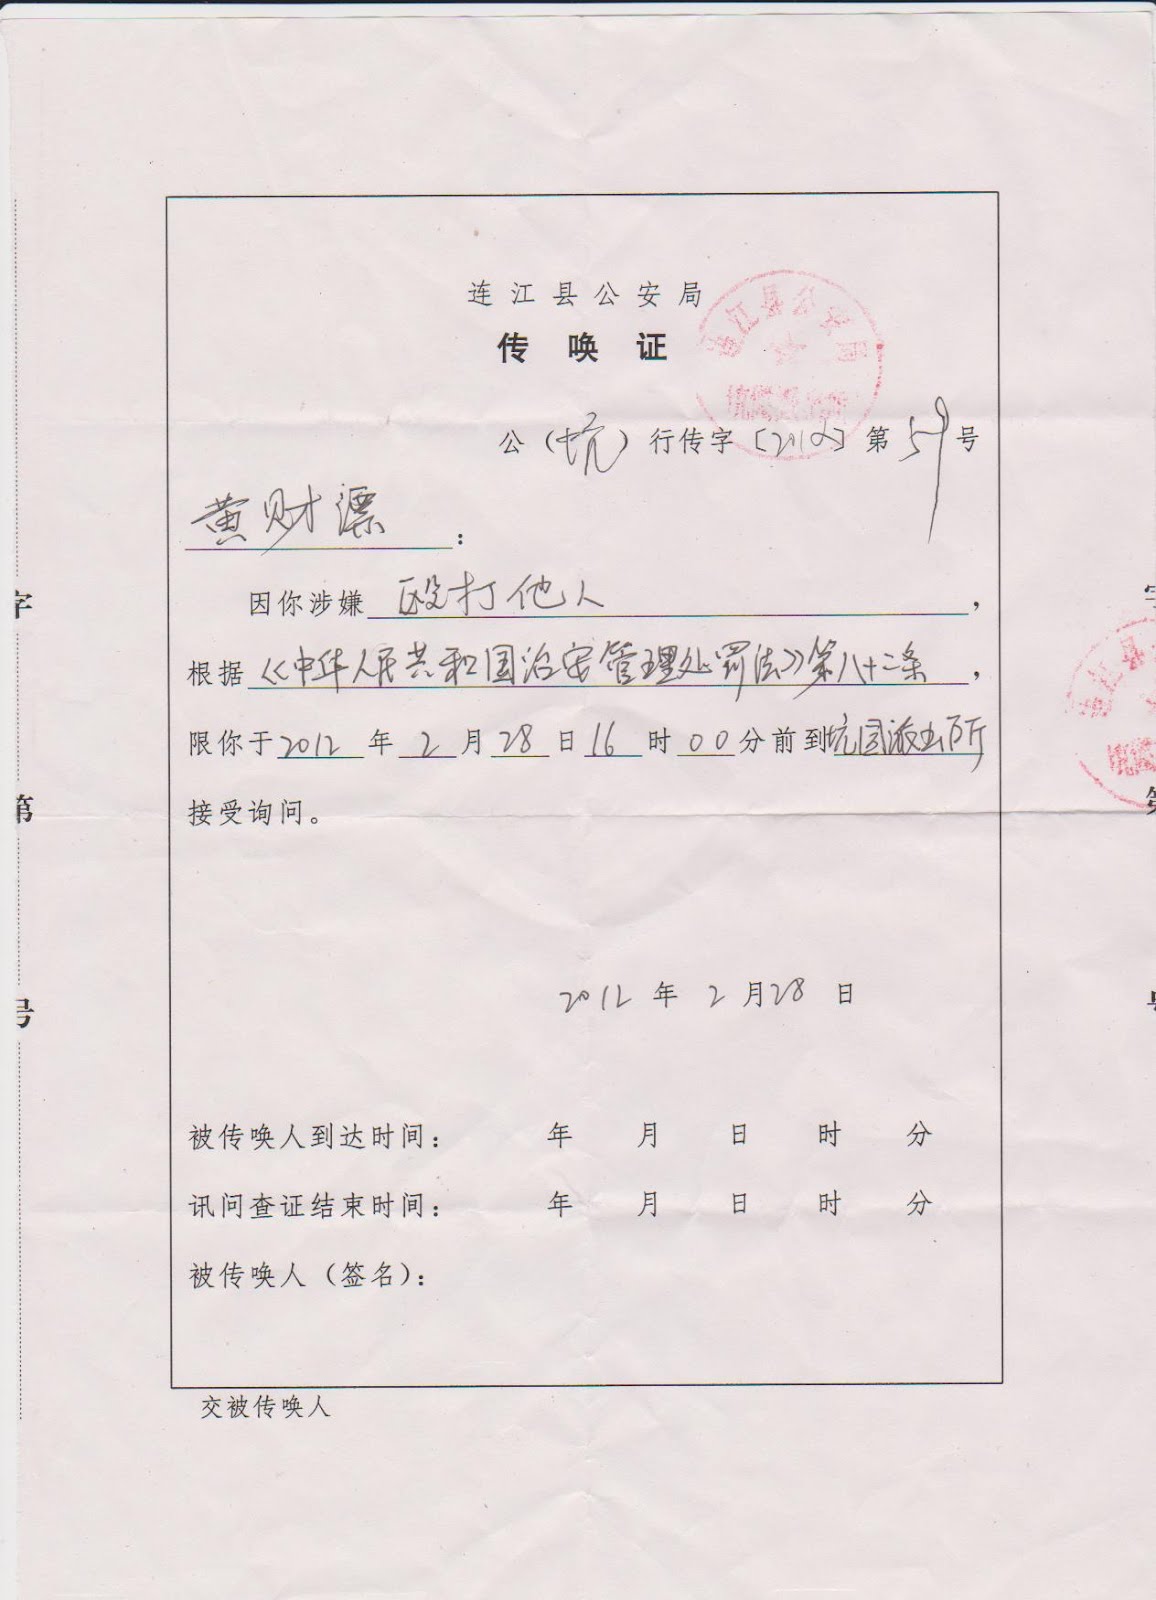 连江县公安局
传唤证
公（坑）行传字〔2012〕第59号
黄财漂：
因你涉嫌殴打他人，
根据《中华人民共和国治安管理处罚法》第八十二条，
限你于2012年2月28日16时00分前到坑园派出所
接受询问。
2012年2月28日
被传唤人到达时间： 年 月 日 时 分
讯问查证结束时间： 年 月 日 时 分
被传唤人（签名）：
交被传唤人
字
第
号